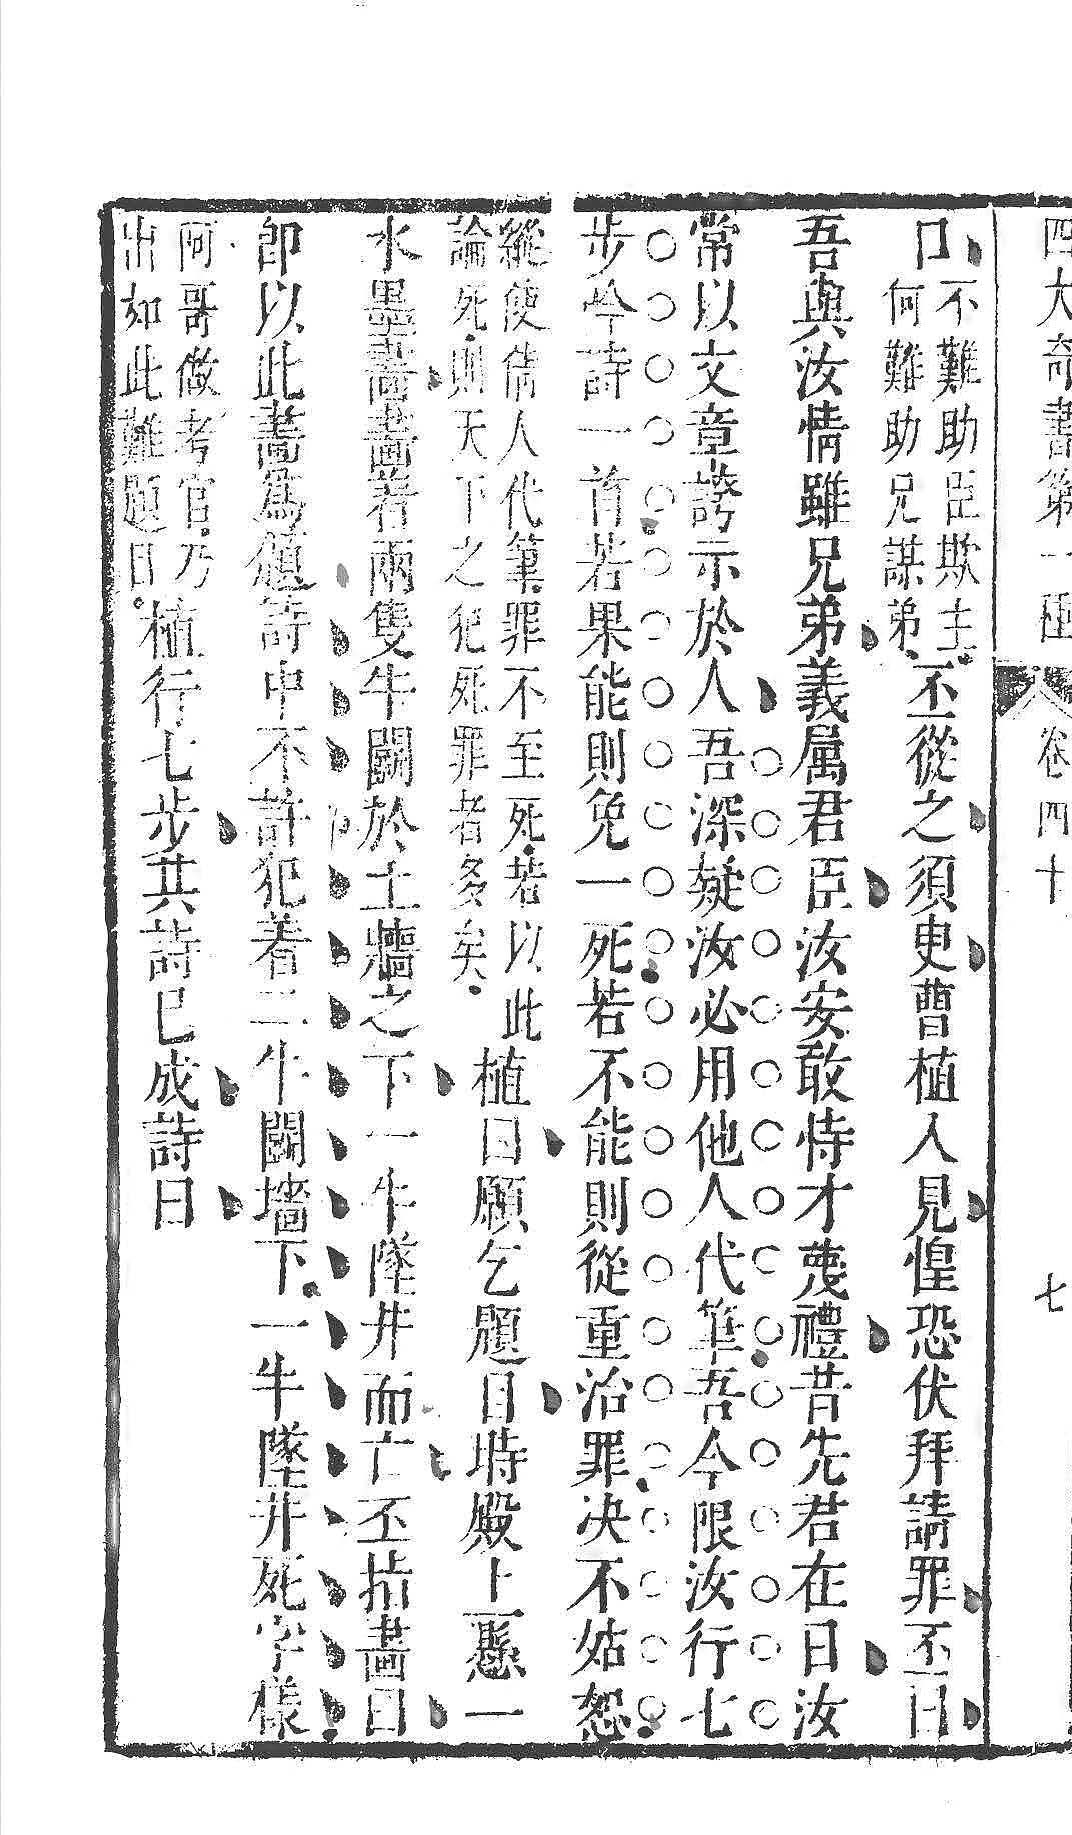 四大奇書第一種
卷四十
七
口不難助臣欺主何難助兄謀弟丕從之須臾曹植入見惶恐伏拜請罪丕曰
吾與汝情雖兄弟義属君臣汝安敢恃才蔑禮昔先君在日汝
常以文章誇示於人吾深疑汝必用他人代筆吾今限汝行七
步令詩一首若果能則免一死若不能則從重治罪决不姑恕
縱使倩人代筆罪不至死若以此論死則天下之犯死罪者多矣植曰願乞題目時殿上懸一
水墨畵畵着兩隻牛鬬於土牆之下一牛墜井而亡丕指畵曰
卽以此畵爲題詩中不許犯着二牛鬬墻下一牛墜井死字樣
阿哥做考官乃出如此難題目植行七步其詩已成詩曰